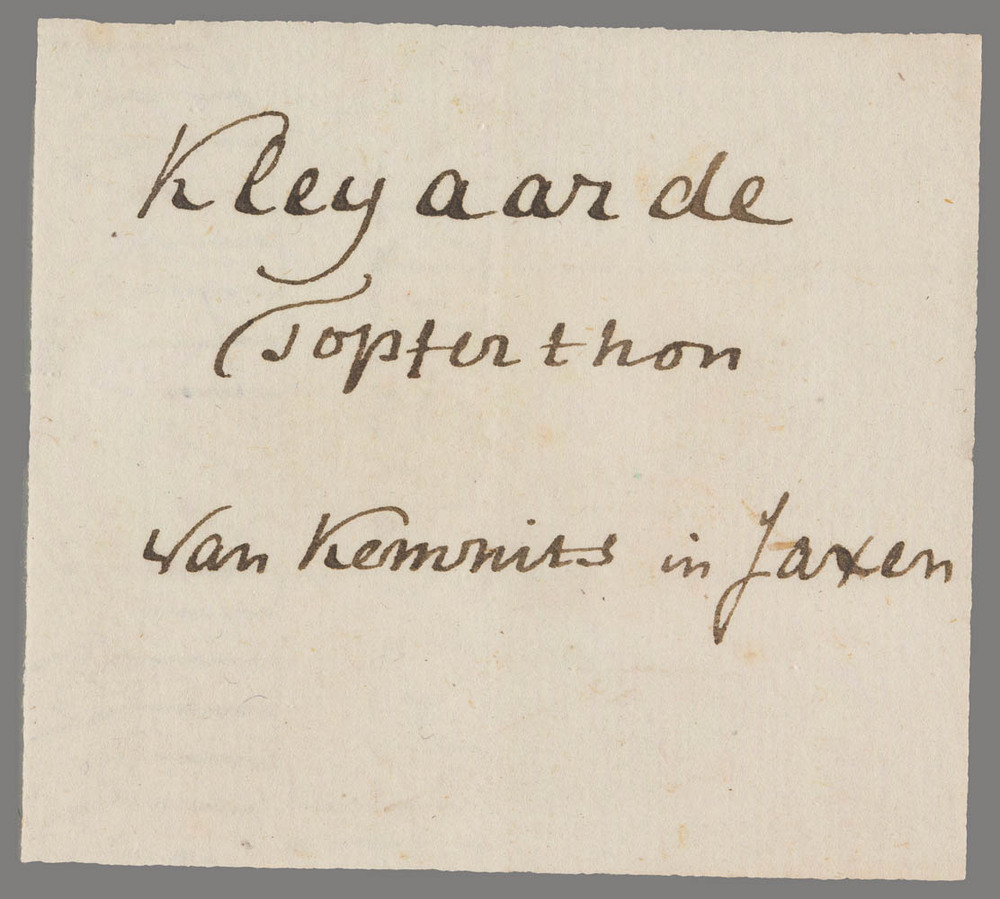 Kley aarde
Topferthon
van Kemnits in Saxen